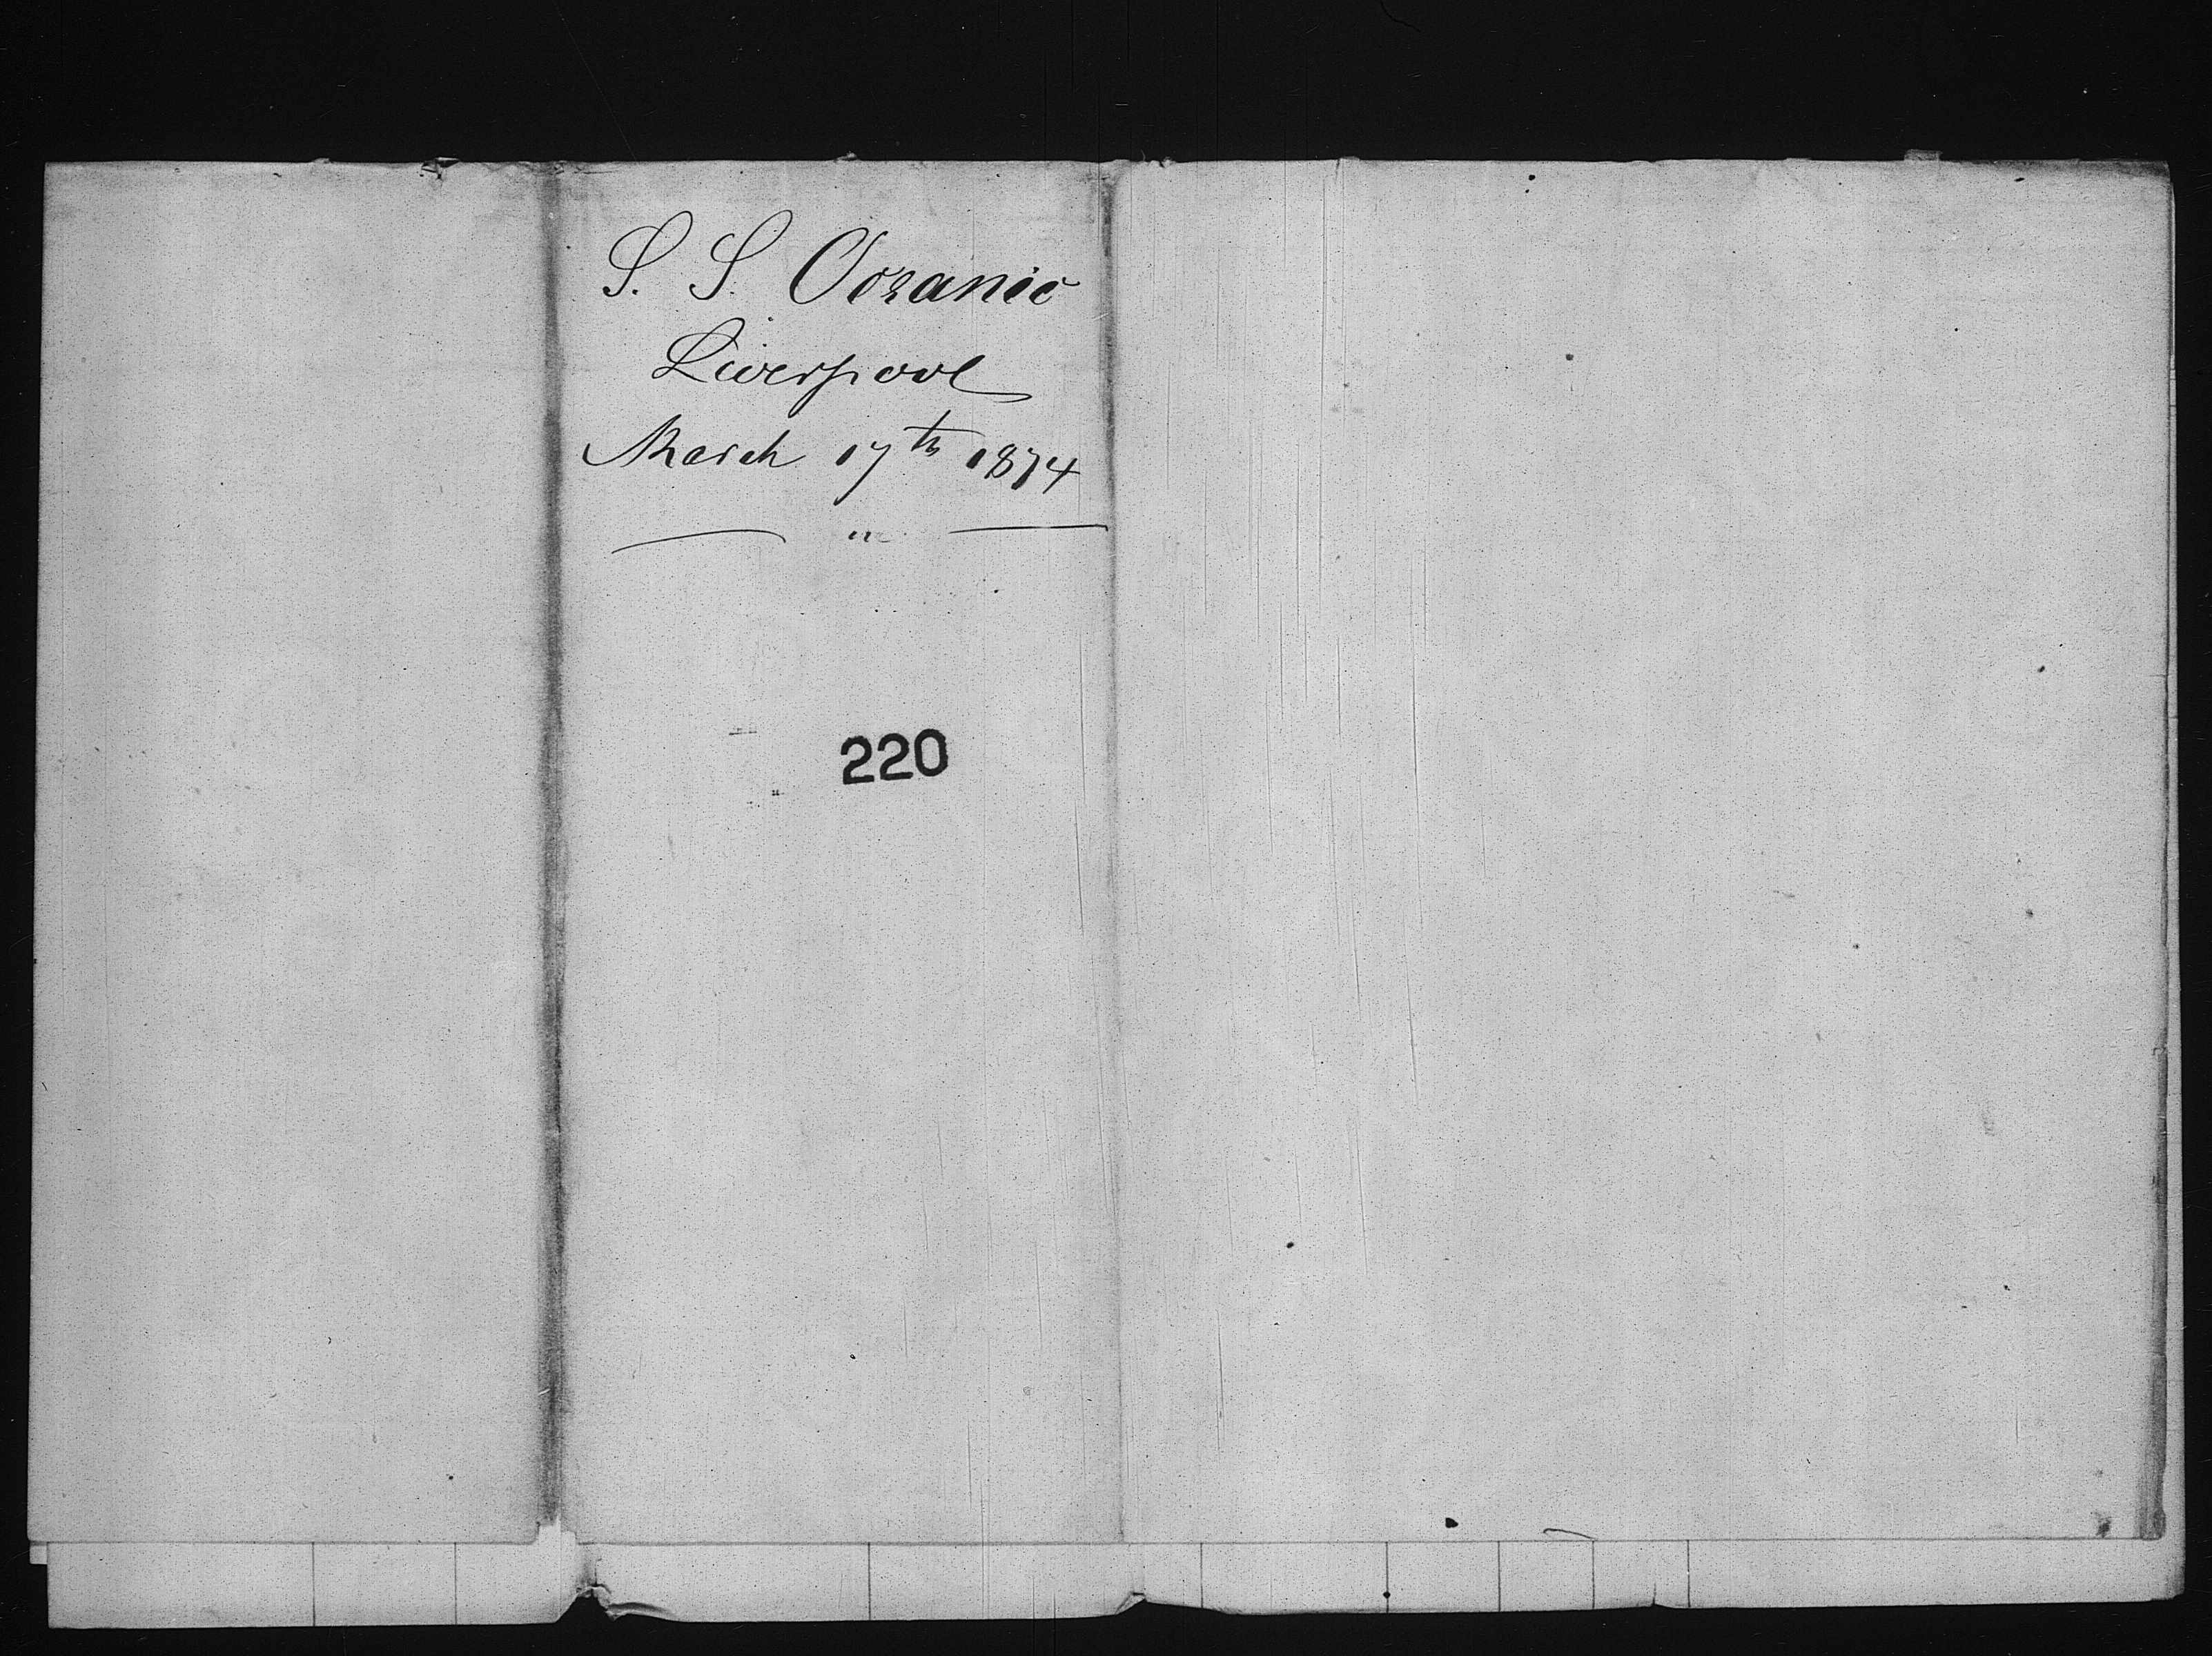 S. S. Oceanic
Liverpool
March 17th 1874
220